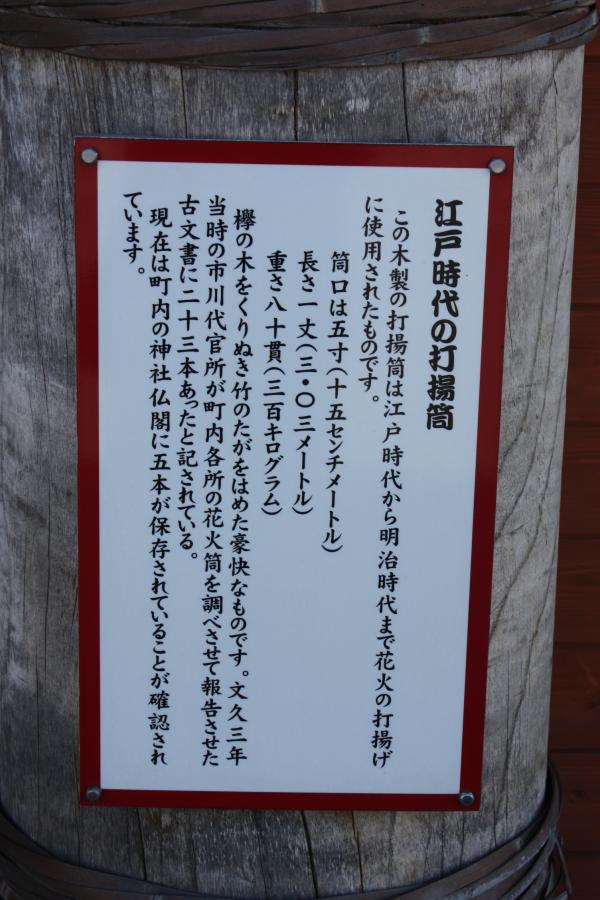 江戸時代の打揚筒
この木製の打揚筒は江戸時代から明治時代まで花火の打揚げ
に使用されたものです。
筒口は五寸(十五センチメートル)
長さ一丈(三・〇三メートル)
重さ八十貫(三百キログラム)
欅の木をくりぬき竹のたがをはめた豪快なものです。文久三年
当時の市川代官所が町内各所の花火筒を調べさせて報告させた
古文書に二十三本あったと記されている。
現在は町内の神社仏閣に五本が保存されていることが確認され
ています。